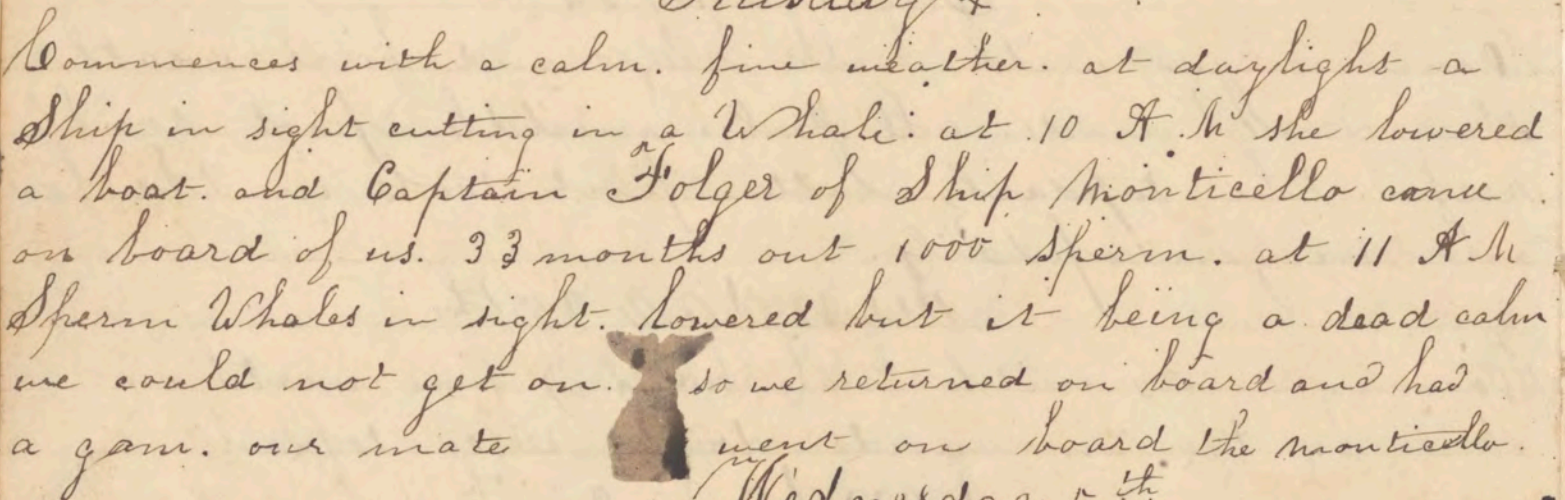 Tuesday 4
Commences with a calm. fine weather. at daylight a
Ship in sight cutting in a Whale: at 10 A M she lowered
a boat. and Captain Folger of Ship Monticello came
on board of us. 33 months out 1000 sperm. at 11 A M
Sperm Whales in sight. lowered but it being a dead calm
we could not get on. so we returned on board and had
a gam. our mate went on board the monticello.
Wednesday 5th